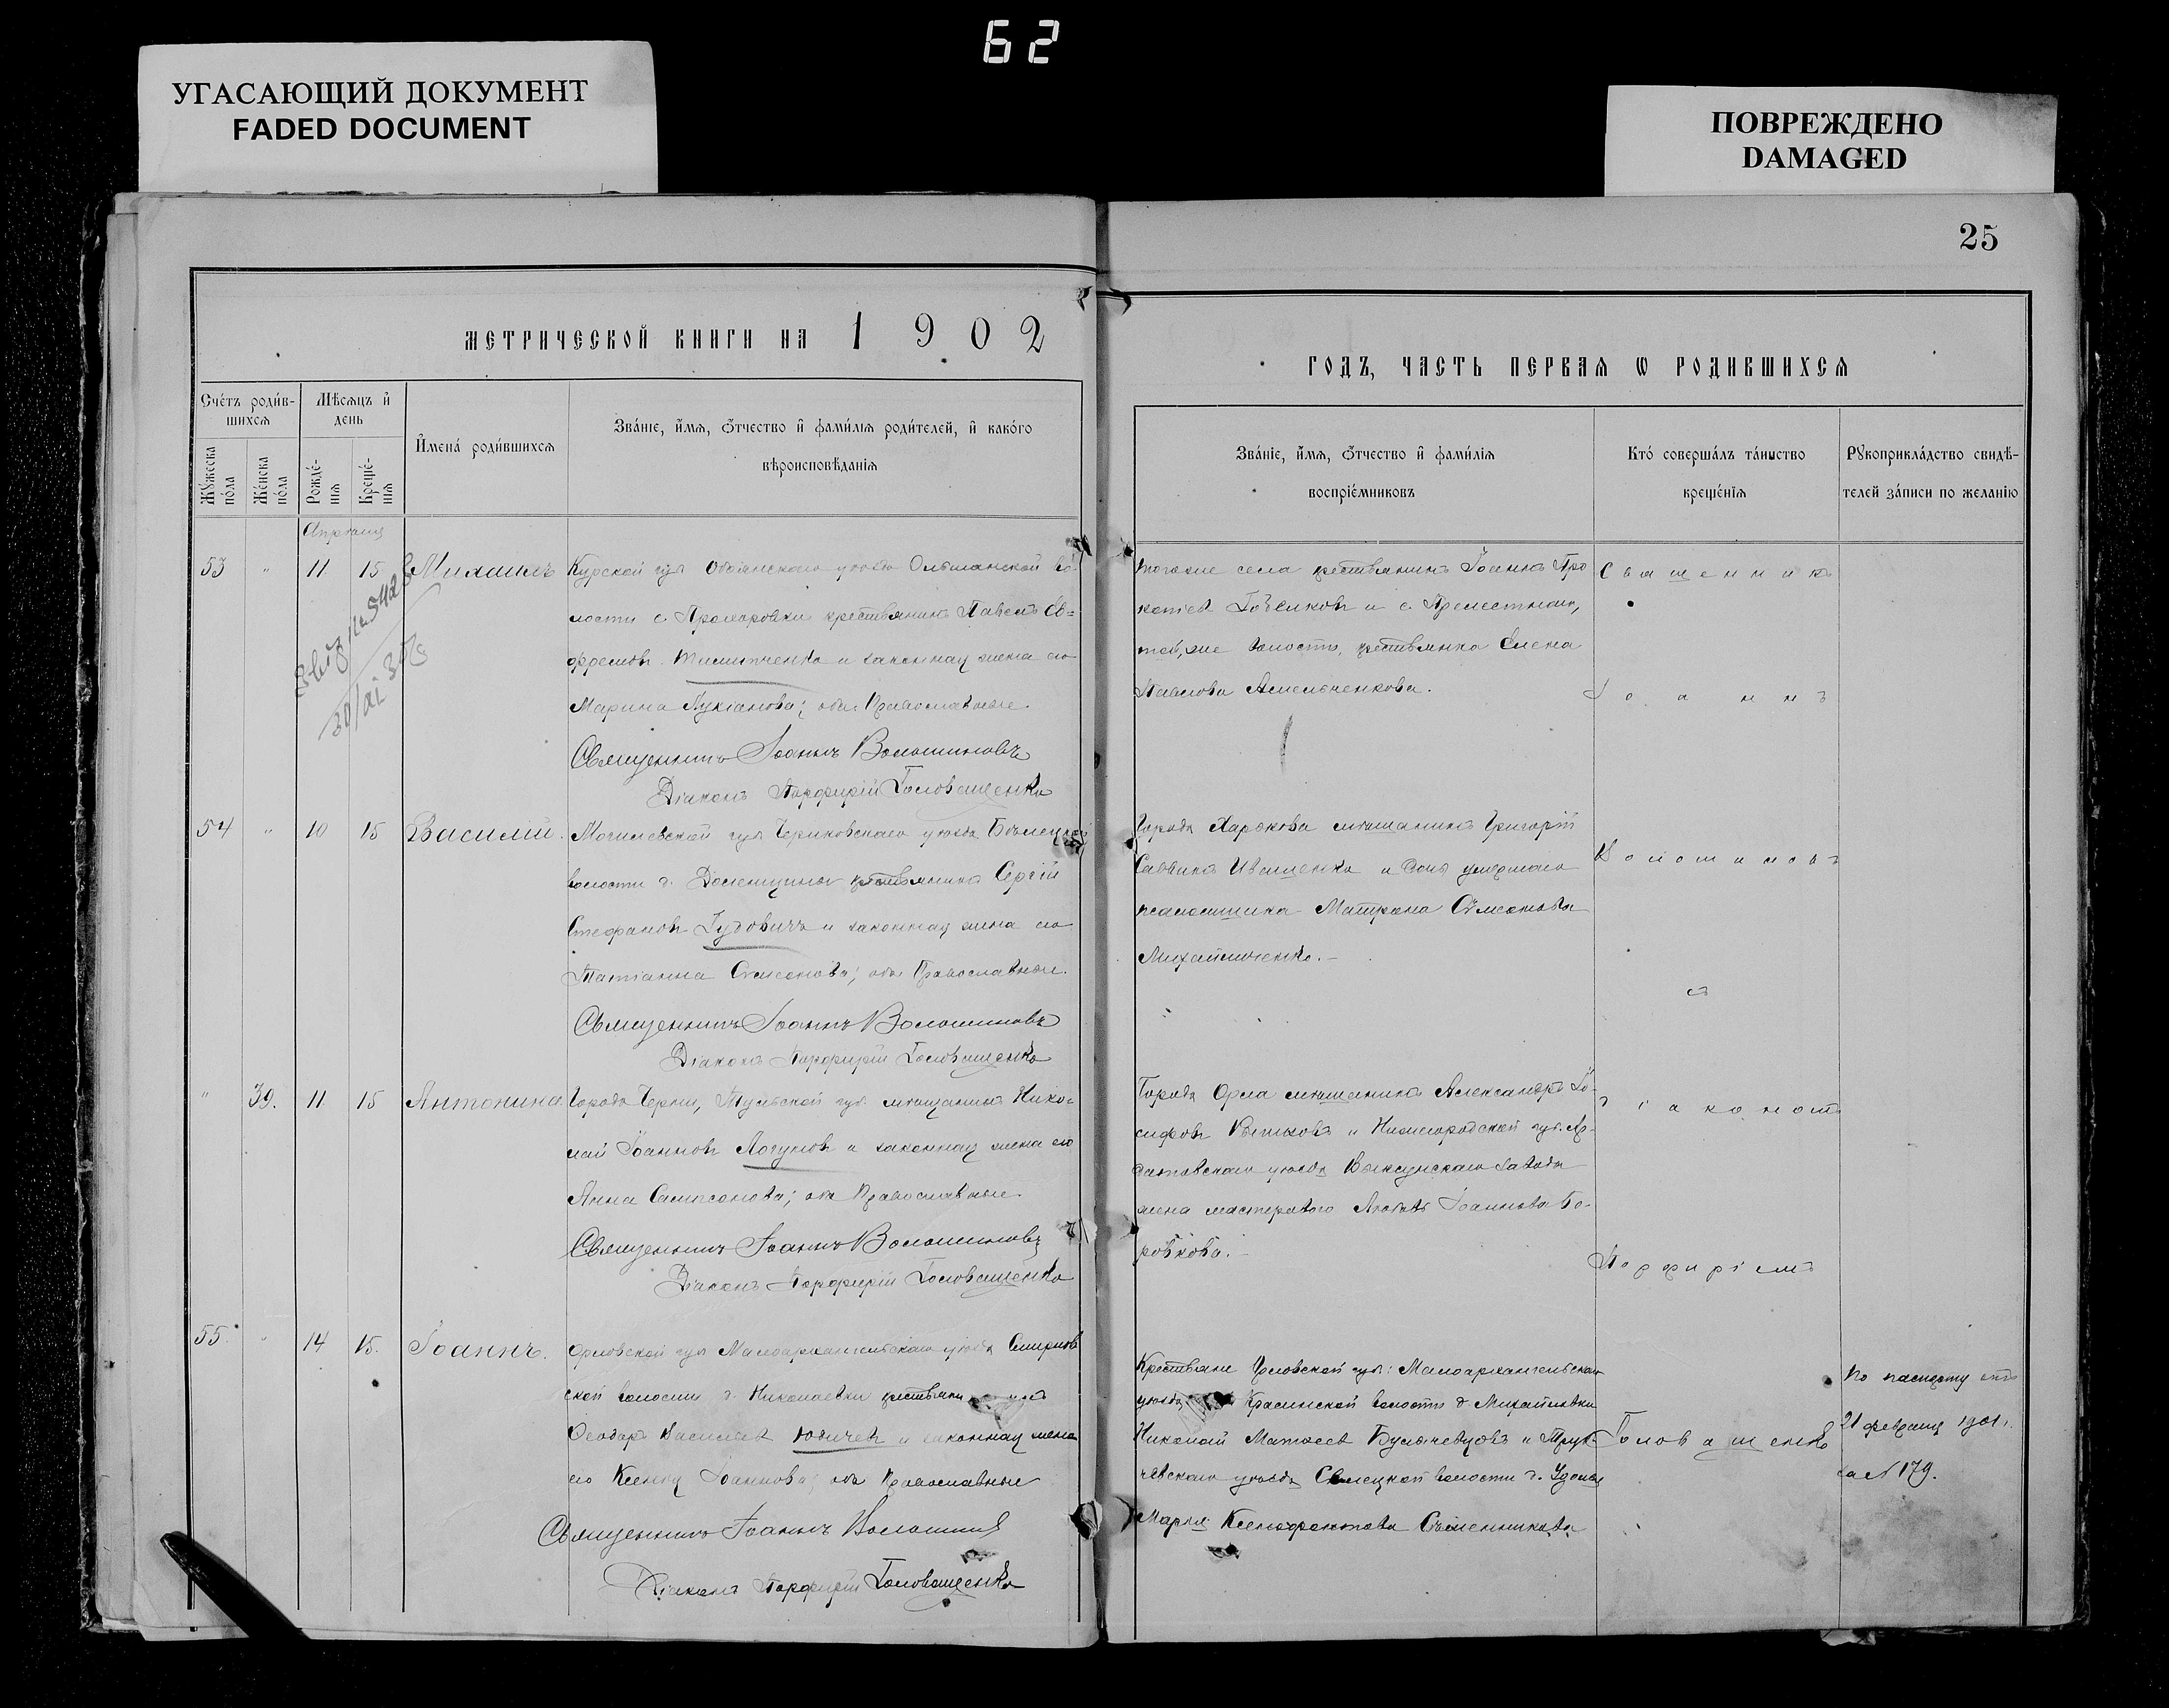 62
УГАСАЮЩИЙ ДОКУМЕНТ
FADED DOCUMENT
ПОВРЕЖДЕНО
DAMAGED
25
МЕТРИЧЕСКОЙ КНИГИ НА 1902
ГОДЪ, ЧАСТЬ ПЕРВАѦ Ѡ РОДИВШИХСѦ
Сче́тъ роди́в-
шихсѧ
Мѣ́сѧцъ и҆
день
Мꙋ́жеска по́ла
Же́нска по́ла
Рожде́-
нїѧ
Креще́-
нїѧ
И҆мена̀ роди́вшихсѧ
Зва́нїе, и҆́мѧ, ѻ҆́тчество и҆ фами́лїѧ роди́телей, и҆ како́гѡ
вѣроисповѣ́данїѧ
Зва́нїе, и҆́мѧ, ѻ҆́тчество и҆ фами́лїѧ
воспрїе́мниковъ
Кто̀ соверша́лъ та́инство
креще́нїѧ
Рꙋкоприкла́дство свидѣ́-
телей за́писи по жела́нїю
Апрѣля
53 " 11 15 Михаилъ
Курской губ. Обоянскаго уѣзда Ольшанской во-
лости с. Прохоровки крестьянинъ Павелъ
и законная жена его
Марина Лукіанова; оба Православные.
Священникъ Іоаннъ Волошиновъ
Діаконъ Порфирій Головащенко
того же села крестьянинъ Іоаннъ Про
и с. Прелестнаго,
той же волости, крестьянка Елена
Павлова Амельченкова.
Священникъ
Іоаннъ
54 " 10 15 Василій.
Могилевской губ. Чериковскаго уѣзда
волости д. крестьянинъ Сергій
Стефановъ Гудовичъ и законная жена его
Татіанна Симеонова; оба Православные.
Священникъ Іоаннъ Волошиновъ
Діаконъ Порфирій Головащенко
Города Харькова мѣщанинъ Григорій
Саввинъ Иващенко и дочь умершаго
псаломщика Матрона Симеонова
Михайличенко.
Волошиновъ
съ
" 39. 11 15 Антонина
Города Черни, Тульской губ. мѣщанинъ Нико-
лай Іоанновъ Логуновъ и законная жена его
Анна Сампсонова; оба Православные.
Священникъ Іоаннъ Волошиновъ
Діаконъ Порфирій Головащенко
Города Орла мѣщанинъ Александръ Іо-
сифовъ и Нижегородской губ. Ар-
датовскаго уѣзда Выксунскаго завода
жена мастероваго Любовь Іоаннова Бо-
ровкова.
діакономъ
Порфиріемъ
55. " 14 15. Іоаннъ.
Орловской губ. Малоархангельскаго уѣзда Смирнов
ской волости д. Николаевки
Ѳеодоръ Васильевъ Юдичевъ и законная жена
его Ксенія Іоаннова; оба Православные
Священникъ Іоаннъ Волошинов
Діаконъ Порфирій Головащенко
Крестьяне Орловской губ.: Малоархангельскаго
уѣзда, волости д. Михайловки
Николай Матвеевъ и Труб-
чевскаго уѣзда волости д.
Марія Ксенофонтова
Головащенко
По паспорту отъ
21 февраля 1901 г.
за № 179.